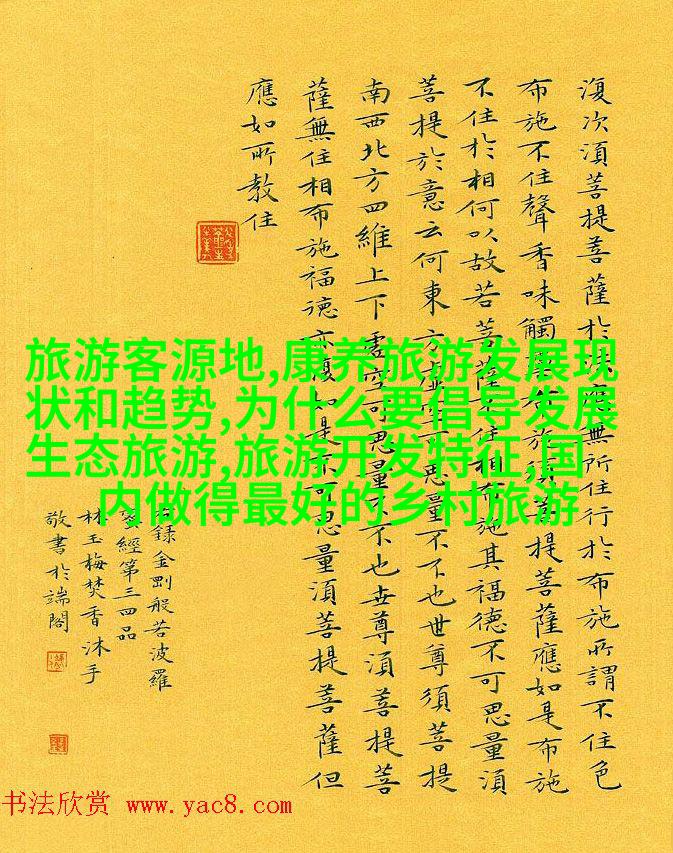 復次湏菩提菩薩於法應無所住行於布施所謂不住色
布施不住聲香味觸法布施湏菩提菩薩應如是布施
不住於相何以故若菩薩不住相布施其福德不可思量湏
菩提於意云何東方虛空可思量不不也世尊須菩提
南西北方四維上下虛空可思量不不也世尊湏菩提菩
薩無住相布施福德亦復如是不可思量湏菩提菩薩但
應如所教住
録金剛般若波羅
蜜經第三四品
林玉梅焚香沐手
敬書於端閣
旅游客源地,康养旅游发展现
状和趋势,为什么要倡导发展
生态旅游,旅游开发特征,国
内做得最好的乡村旅游
书法欣赏 www.yac8.com